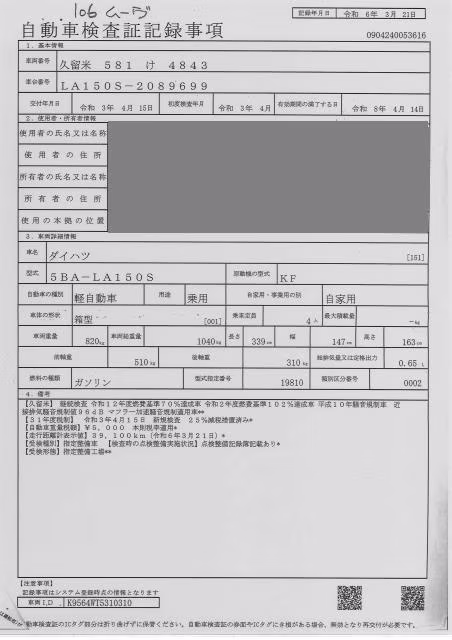 106 ムーヴ
記録年月日 令和 6年 3月 21日
自動車検査証記録事項
0904240053616
1．基本情報
車両番号 久留米 581 け 4843
車台番号 LA150S-2089699
交付年月日 令和 3年 4月 15日 初度検査年月 令和 3年 4月 有効期間の満了する日 令和 8年 4月 14日
2．使用者・所有者情報
使用者の氏名又は名称
使用者の住所
所有者の氏名又は名称
所有者の住所
使用の本拠の位置
3．車両詳細情報
車名 ダイハツ [151]
型式 5BA-LA150S 原動機の型式 KF
自動車の種別 軽自動車 用途 乗用 自家用・事業用の別 自家用
車体の形状 箱型 [001] 乗車定員 4人 最大積載量 -kg
車両重量 820kg 車両総重量 1040kg 長さ 339cm 幅 147cm 高さ 163cm
前軸重 510kg 後軸重 310kg 総排気量又は定格出力 0.65 L
燃料の種類 ガソリン 型式指定番号 19810 類別区分番号 0002
4．備考
【久留米】 継続検査 令和12年度燃費基準70%達成車 令和2年度燃費基準102%達成車 平成10年騒音規制車 近
接排気騒音規制値96dB マフラー加速騒音規制適用車**
【31年度税制】 令和3年4月15日 新規検査 25%減税措置済み*
【自動車重量税額】¥5,000 本則税率適用*
【走行距離計表示値】39,100km（令和6年3月21日）*
【受検種別】指定整備車 【検査時の点検整備実施状況】点検整備記録簿記載あり*
【受検形態】指定整備工場**
【注意事項】
記録事項はシステム登録時点の情報となります
車両I.D. K9564WT5310310
動車検査証のICタグ部分は折り曲げずに保管ください。自動車検査証の券面やICタグに余損がある場合、無効となり再交付が必要です。